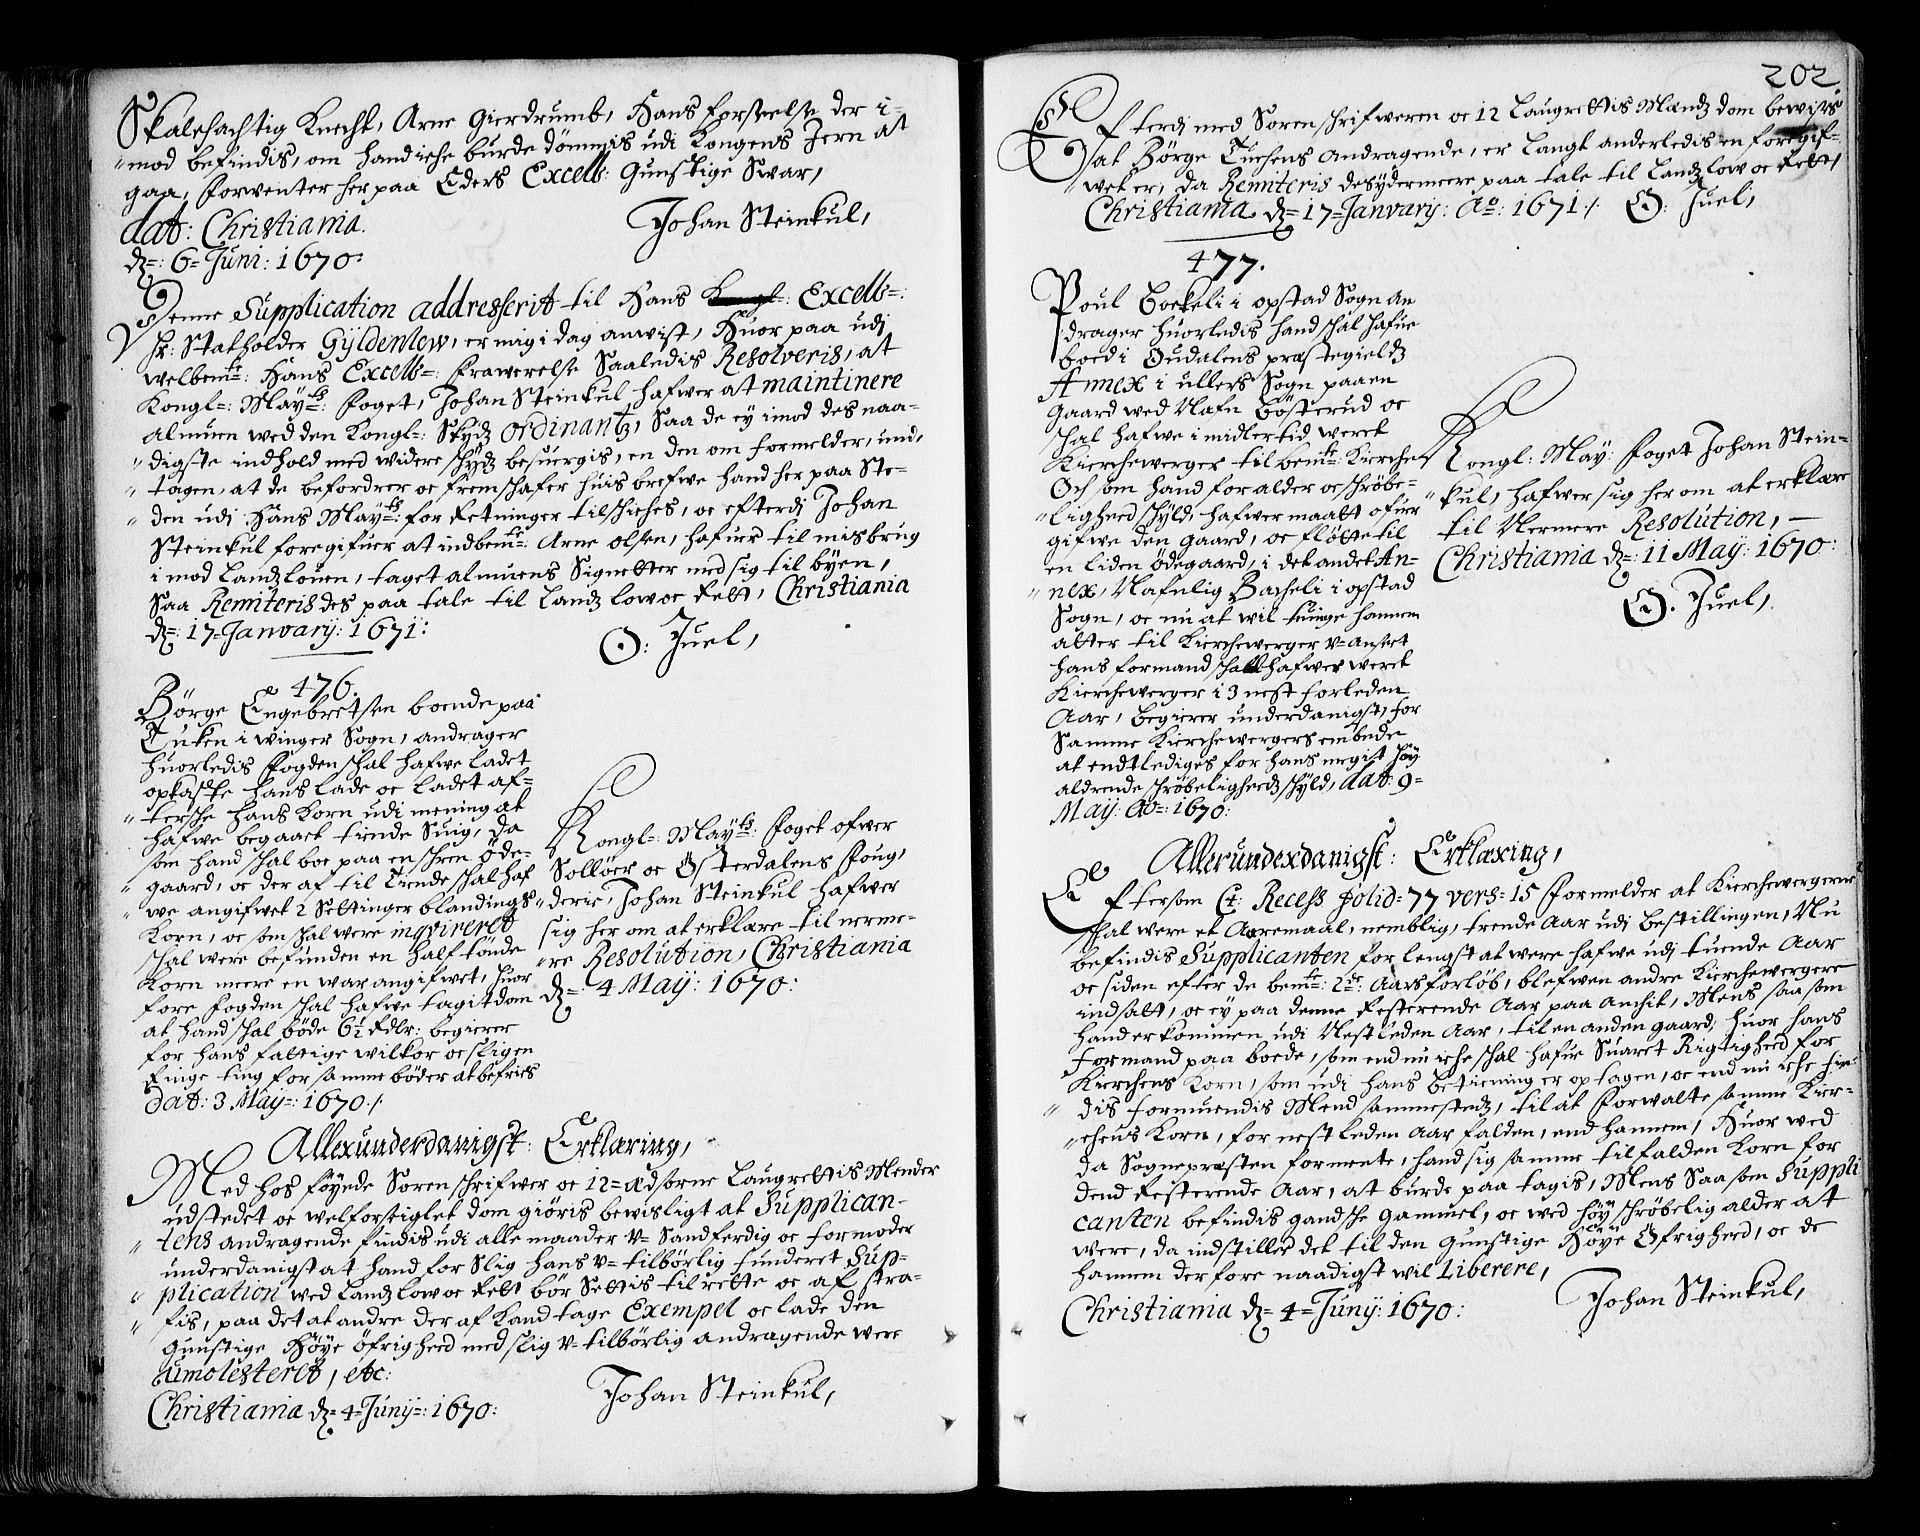 Skalchachtig Knecht, Arne Gierdrumb, Hans forseelse der i-
"mod befindis, om hand iche burde dömmis udi Kongens Jern at
gaa, forwenter her paa Eders Excell: Gunstige Swar,
dat: Christiania.
dz=: 6= Juni: 1670:
Johan Steinkul,
Denne Supplication addresserit til Hans Excell=:
Hr: Statholder Gyldenlew, er mig i dag anwist, Huor paa udj
welbemte: Hans Excell=: frawerelse Saaledis Resolveris, at
Kongl=: Mayts: foget, Johan Steinkul hafwer at maintinere
almuen wed den Kongl=: Skydz ordinantz, Saa de ey imod des naa-
"digste indhold med widere skydz besuergis, en den om formelder, und,
"tagen, at de befordrer oc fremskafer huis brefwe hand her paa Ste-
"den udi Hans Mayts: forretninger tilskiches, oc efterdi Johan
Steinkul foregifuer at indbemte: Arne olsen, hafuer til misbrug
imod Landzlouen, taget almuens Signetter med sig til byen,
Saa Remiteris des paa tale til Landz low oc Rett, Christiania
dz=: 17= Janvarij: 1671:
O: Juel,
476.
Börge Engebretsen boende paa
Tuken i winger Sogn, andrager
huorledis fogden skal hafwe ladet
opkaste hans lade oc ladet af-
"tersche hans Korn udi mening at
hafwe begaaet tiende Suig, da
som hand skal boe paa en schen öde-
"gaard, oc der af til Tiende skal haf
"we angifwet 2 Settinger blandings
Korn, oc som skal were inqvireret
skal were befunden en half tönde
Korn meere en war angifwet, huor
fore fogden skal hafwe tagit dom
at hand skal böde 6½ Rdlr: begierer
for hans fattige wilkor oc sligen
Ringe ting for samme böder at befries
dat: 3 May=: 1670./.
Kongl=: Mayts: foget ofwer
Sollöer oc Österdalens foug,
"derie, Johan Steinkul hafwer
sig her om at erklære til nerme-
"re Resolution, Christiania
dz= 4 May: 1670:
Allerunderdanigst: Erklæring,
Med hos föyede Soren skrifwer oc 12= ædsorne Laugrettis Mender
udstedet oc welforseiglet dom giöris bewisligt at Supplican-
"tens andragende findis udi alle maader v= Sandferdig oc formoder
underdanigst at hand for Slig hans v= tilbörlig funderet Sup-
"plication wed Landz low oc Rett bör Settis til rette oc af stra-
"fis, paa det at andre der af Kand tage Exempel oc lade den
gunstige Höye öfrighed med slig v= tilbörlig andragende were
umolesteret, etc:
Christiania dz= 4= Junij=: 1670:
Johan Steinkul,
202
Efterdj med Soren skrifweren oc 12 Laugrettis Mændz dom bewises
at Börge Tuchens andragende, er langt anderledis en foregif-
"wet er, da Remiteris desydermeere paa tale til Landz low oc Rett,
Christiania dz= 17= Janvarij: Ao: 1671./. O: Juel,
477.
Poul Boekeli i opstad Sogn an
drager huorledis hand skal hafue
boed i Oudalens præstegieldz
Annex i ullers Sogn paa en
Gaard wed Nafn Bösterud oc
skal hafwe i midlertid weret
Kierchewerger til bemte: Kierche
Och som hand for alder oc skröbe-
"lighed skyld, hafwer maatt ofuer
gifwe den gaard, oc fløtte til
en liden ödegaard, i det andet An-
"nex, Nafnlig Bacheli i opstad
Sogn, oc nu at wil tuinge hannem
atter til Kierchewerger v= anseet
hans formand skal hafwer weret
Kierchewerger i 3 nest forleden
Aar, begierer underdanigst, for
Samme Kierchewergers embede
at endtlediges for hans megit höy
aldrende skröbeligheds skyld, dat: 9=
May: Ao=: 1670:
Kongl: May: foget Johan Stein=
"kul, hafwer sig her om at erklære
til Nermere Resolution,
Christiania dz= 11 May: 1670:
O. Juel,
Allerunderdanigst: Erklæring,
Eftersom Ch: Recess folid= 77 vers= 15 formelder at Kierchewergerne
skal were et Aaremaal, nemblig, trende Aar udi bestillingen, Nu
befindis Supplicanten for lengst at were hafwe udi tuende Aar
oc siden efter de bemte: 2de: Aars forløb, blefwen andre Kierchewergere
indsatt, oc ey paa denne Resterende Aar paa anchit, Mens saa som
hand er kommen udi Nestleden Aar, til en anden gaard, huor hans
formand paa boede, som end nu iche skal hafue Suaret Rigtighed for
Kierchens Korn, som udi hans betiening er optagen, oc end nu iche fin-
"dis formuendis Mend sammestedz, til at forwalte samme Kier-
"chens Korn, for nestleden Aar falden, end hannem, Huor wed
da Sognepræsten formente, hand sig samme tilfalden Korn for
dend Resterende Aar, at burde paa tagis, Mens Saa som Suppli
canten befindis gandsche gammel, oc wed höy skröbelig alder at
were, da indstilles det til den gunstige Höye Öfrighed, oc de
hannem der fore naadigst wil Liberere,
Christiania dz= 4= Junij: 1670:
Johan Steinkul,